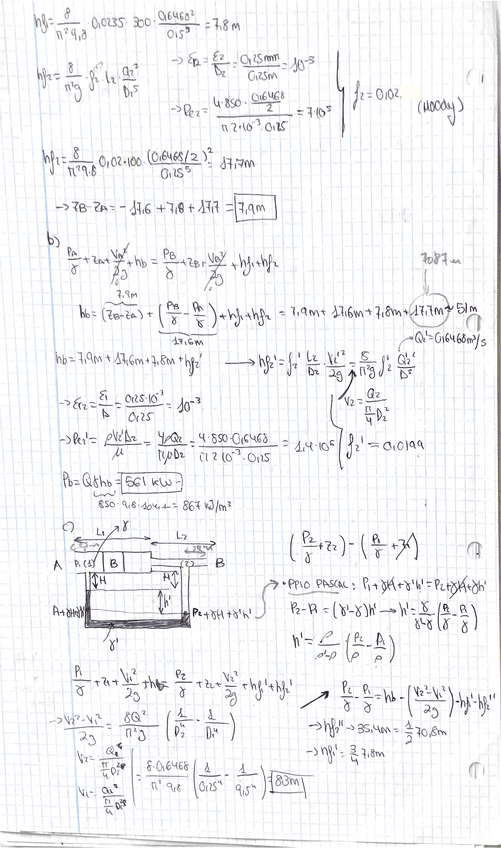 hf₁ = 8/(π²9,8) · 0,0235 · 300 · 0,6468²/0,5⁵ = 7,8 m
hf₂ = 8/(π²g) · f₂ · L₂ · Q₂²/D₂⁵
→ εr₂ = ε₂/D₂ = 0,25mm/0,25m = 10⁻³
→ Re₂ = (4·850·0,6468/2)/(π 2·10⁻³·0,25) = 7·10⁵
f₂ = 0,02 (Moody)
hf₂ = 8/(π²9,8) · 0,02·100 · (0,6468/2)²/0,25⁵ = 17,7m
→ ZB-ZA = -17,6 + 7,8 + 17,7 = 7,9m
b)
PA/γ + ZA + VA²/2g + hb = PB/γ + ZB + VB²/2g + hf₁ + hf₂
7087m
7,9m
hb = (ZB-ZA) + (PB/γ - PA/γ) + hf₁ + hf₂ = 7,9m + 17,6m + 7,8m + 17,7m ≈ 51m
17,6m
→ Q₂' = 0,6468m³/s
hb = 7,9m + 17,6m + 7,8m + hf₂' → hf₂' = f₂' L₂/D₂ V₂'²/2g = 8/(π²g) f₂' Q₂'²/D⁵
V₂ = Q₂/(π/4 D₂²)
→ εr₂ = ε₂/D = 0,25·10⁻³/0,25 = 10⁻³
→ Re₂' = ρV₂'D₂/μ = 4ρQ₂/(πμD₂) = 4·850·0,6468/(π 2·10⁻³·0,25) = 1,4·10⁶
f₂' = 0,0199
Pb = Qγhb = 561 kW
850·9,8· = 867 kJ/m³
c)
γ
L₁ L₂
A A(1) B (2) B
H H
h'
P₂ + γH + γ'h'
γ'
(P₂/γ + z₂) - (P₁/γ + z₁)
• PPIO PASCAL: P₁ + γH + γ'h' = P₂ + γH + γh'
P₂-P₁ = (γ'-γ)h' → h' = γ/(γ'-γ) (P₂/γ - P₁/γ)
h' = ρ/(ρ'-ρ) (P₂/ρ - P₁/ρ)
P₁/γ + z₁ + V₁²/2g + hb = P₂/γ + z₂ + V₂²/2g + hf₁' + hf₂'
P₂/γ - P₁/γ = hb - (V₂²-V₁²/2g) - hf₁' - hf₂''
→ (V₂²-V₁²)/2g = 8Q²/(π²g) (1/D₂⁴ - 1/D₁⁴)
→ hf₂'' → 35,4m = 1/2 70,8m
→ hf₁' = 3/4 7,8m
V₂ = Q₂/(π/4 D₂²)
V₁ = Q₁/(π/4 D₁²)
= 8·0,6468/(π²·9,8) (1/0,25⁴ - 1/0,5⁴) = 83m